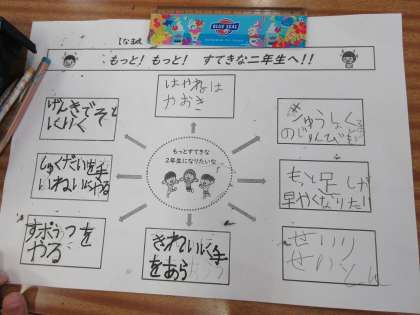 BLUE SEAL
もっと! もっと! すてきな二年生へ!!
はやねは
やおき
げんきでそと
にいく
きゅうしょく
のじゅんびも
もっとすてきな
2年生になりたいな
しゅくだいを手
いねいにやる
もっと足しが
早やくなりた!!
すポーつを
やる
きれいに手
をあら
せいり
せいとん